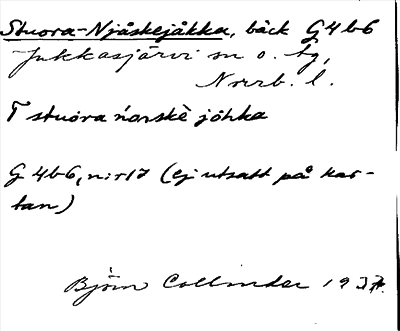 Stuora-Njåskejåkka, bäck G4b6
Jukkasjärvi sn o. tg,
Nrrb. l.
T stuora ńɑrskè jǒhka
G 4b6, n:r17 (ej utsatt på kar-
tan)
Björn Collinder 1937.